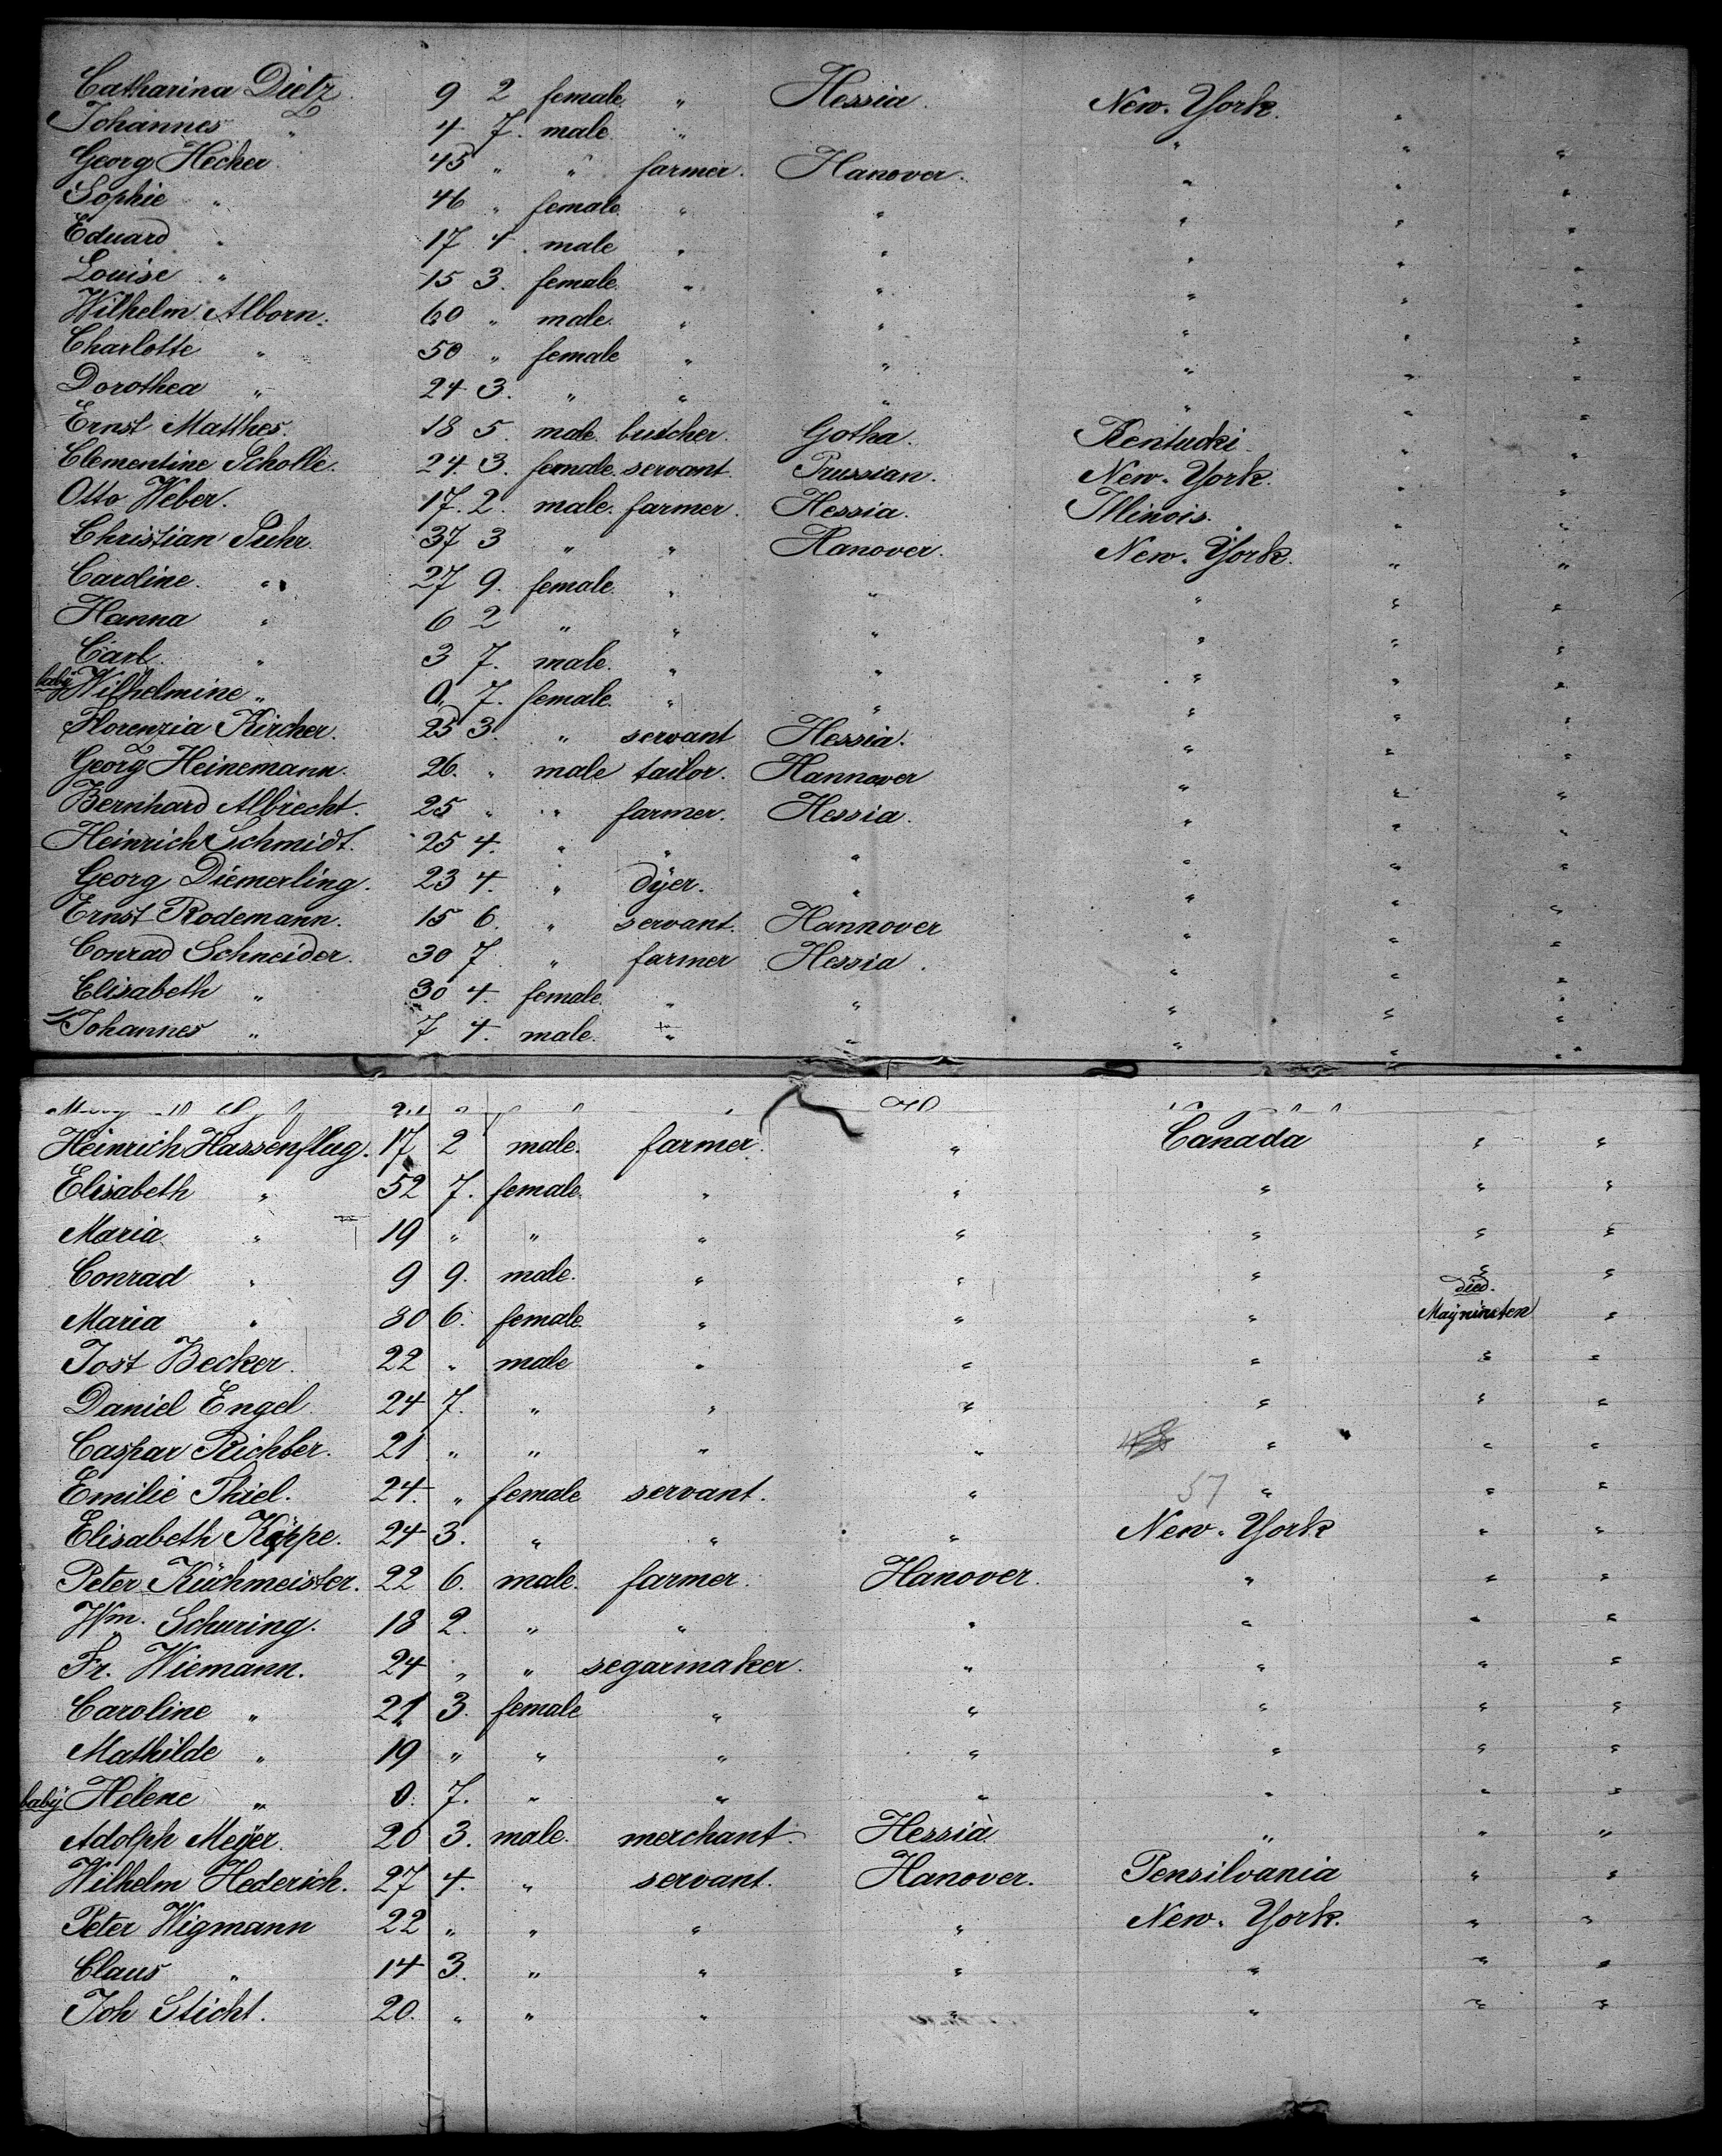 Catharina Dietz. 9 2 female. " Hessia. New. York. "
Johannes " 4 7. male. " " " "
Georg Hecher. 45 " " farmer. Hanover. " " "
Sophie " 46 " female. " " " " "
Eduard " 17 4. male " " " " "
Louise " 15 3. female. " " " " "
Wilhelm Alborn. 60 " male. " " " " "
Charlotte " 50 " female " " " " "
Dorothea " 24 3. " " " " " "
Ernst Matthes. 18 5. male. butcher. Gotha. Kentucki. " "
Clementine Scholle. 24 3. female. servant. Prussian. New. York. " "
Otto Weber. 17. 2. male. farmer. Hessia. Illinois. " "
Christian Puhr. 37 3 " " Hanover. New. York. " "
Caroline. " 27 9. female. " " " " "
Hanna " 6 2 " " " " " "
Carl. " 3 7. male. " " " " "
baby Wilhelmine " 0. 7. female. " " " " "
Florenzia Kircher. 25 3. " servant Hessia. " " "
Georg Heinemann. 26. " male tailor. Hannover " " "
Bernhard Albrecht. 25 " " farmer. Hessia. " " "
Heinrich Schmidt. 25 4. " " " " " "
Georg Diemerling. 23 4. " dÿer. " " " "
Ernst Rodemann. 15 6. " servant. Hannover " " "
Conrad Schneider. 30 7. " farmer Hessia. " " "
Elisabeth " 30 4. female. " " " " "
Johannes " 7 4. male. " " " " "
Heinrich Hassenflug. 17 2 male. farmer. " Canada " "
Elisabeth " 52 7. female. " " " " "
Maria " 19 " " " " " " "
Conrad " 9 9. male. " " " " "
died.
Maria " 30 6. female. " " " Maÿ nineten "
Jost Becker. 22 " male " " " " "
Daniel Engel. 24 7. " " " " " "
Caspar Richber. 21 " " " " " " "
Emilie Thiel. 24. " female servant. " 57 " " "
Elisabeth Köppe. 24 3. " " " New. York " "
Peter Küchmeister. 22 6. male. farmer. Hanover. " " "
Wm. Schuring. 18 2. " " " " " "
Fr. Wiemann. 24 " " segarmaker. " " " "
Caroline " 21 3. female " " " " "
Mathilde " 19 " " " " " " "
baby Helene " 0. 7. " " " " " "
Adolph Meÿer. 20 3. male. merchant. Hessia " " "
Wilhelm Hederich. 27 4. " servant. Hanover. Pensilvania " "
Peter Wigmann 22 " " " " New. York. " "
Claus " 14 3. " " " " " "
Joh Sticht. 20. " " " " " " "